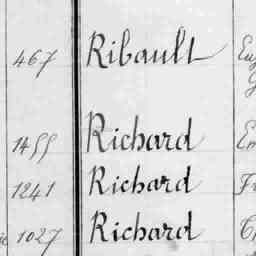 467 Ribault
1455 Richard
1241 Richard
1027 Richard